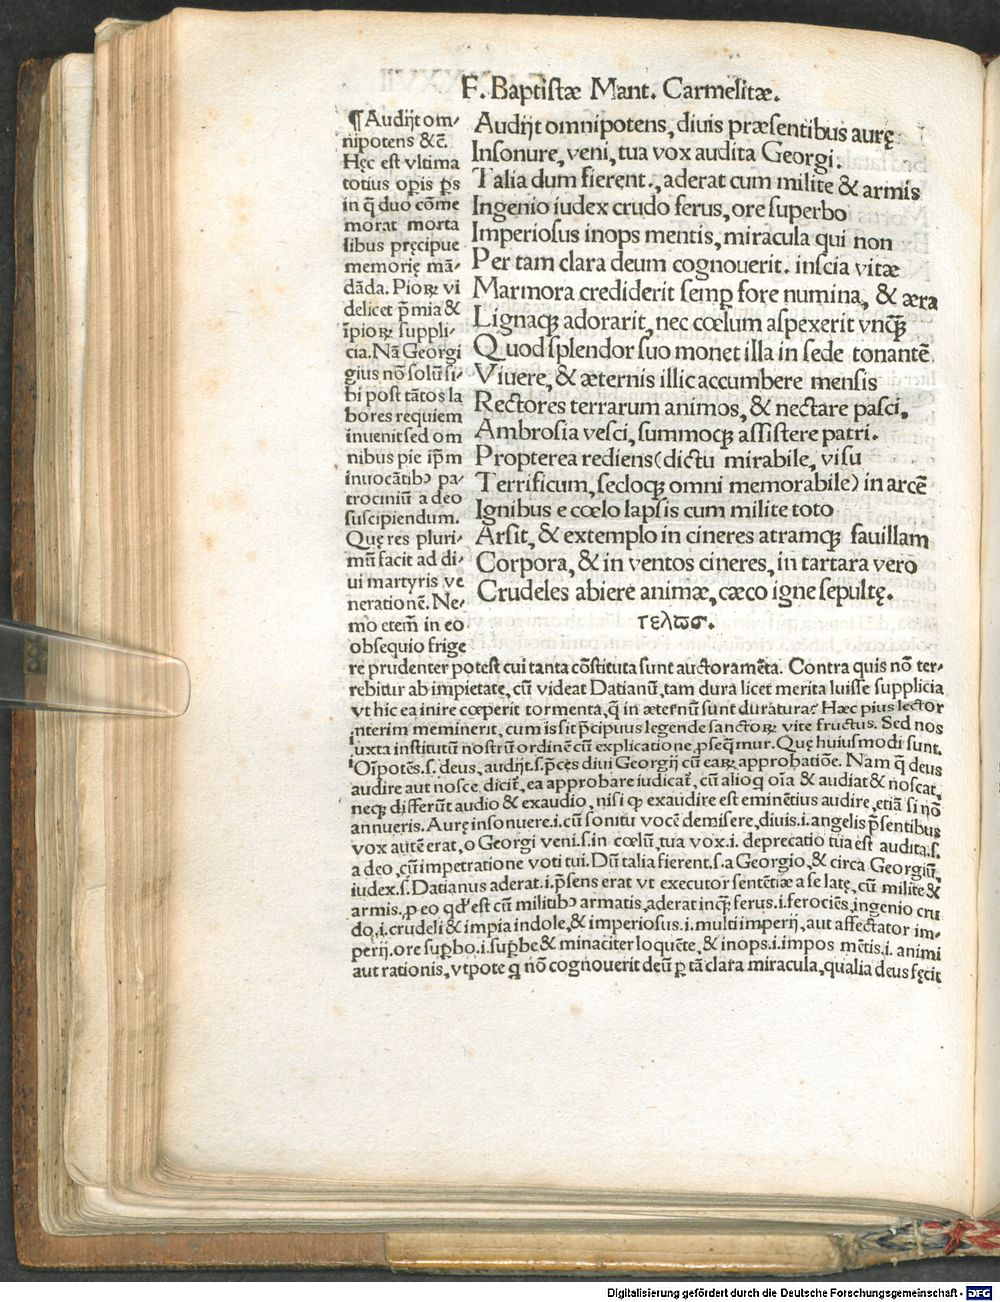 F. Baptistæ Mant. Carmelitæ.
Audijt omnipotens, diuis præsentibus aurę
Insonure, veni, tua vox audita Georgi.
Talia dum fierent., aderat cum milite & armis
Ingenio iudex crudo ferus, ore superbo
Imperiosus inops mentis, miracula qui non
Per tam clara deum cognouerit. inscia vitæ
Marmora crediderit semꝑ fore numina, & æra
Lignaqꝫ adorarit, nec cœlum aspexerit vnqꝫ̃
Quod splendor suo monet illa in sede tonantẽ
Viuere, & æternis illic accumbere mensis
Rectores terrarum animos, & nectare pasci,
Ambrosia vesci, summoqꝫ assistere patri.
Propterea rediens (dictu mirabile, visu
Terrificum, secloqꝫ omni memorabile) in arcẽ
Ignibus e cœlo lapsis cum milite toto
Arsit, & extemplo in cineres atramqꝫ fauillam
Corpora, & in ventos cineres, in tartara vero
Crudeles abiere animæ, cæco igne sepultę.
τελϖσ.
¶ Audijt om-
nipotens &c̃.
Hęc est vltima
totius oꝑis p̃s
in q̃ duo cõme
morat morta
libus pręcipue
memorię mã-
dãda. Pioꝝ vi
delicet p̃mia &
ĩpioꝝ suppli-
cia. Nã Georgi
gius nõ solũ si-
bi post tãtos la
bores requiem
inuenit sed om
nibus pie ip̃m
inuocãtibꝰ pa-
trociniũ a deo
suscipiendum.
Quę res pluri-
mũ facit ad di-
ui martyris ve
nerationẽ. Ne-
mo etem̃ in eo
obsequio frige
re prudenter potest cui tanta cõstituta sunt auctoramẽta. Contra quis nõ ter-
rebitur ab impietate, cũ videat Datianũ, tam dura licet merita luisse supplicia
vt hic ea inire cœperit tormenta, q̃ in æternũ sunt duratura? Hæc pius lector
interim meminerit, cum is sit p̃cipuus legende sanctoꝝ vite fructus. Sed nos
iuxta institutũ nostrũ ordinẽ cũ explicatione ꝓseq̃mur. Quę huiusmodi sunt.
Oĩpotẽs.s. deus, audijt.s.p̃ces diui Georgij cũ eaꝝ approbatiõe. Nam q̃ deus
audire aut nosce dicit̃, ea approbare iudicat̃, cũ alioq̃ oĩa & audiat & noscat,
neqꝫ differũt audio & exaudio, nisi qꝫ exaudire est eminẽtius audire, etiã si nõ
annueris. Aurę insonuere.i.cũ sonitu vocẽ demisere, diuis.i.angelis p̃sentibus
vox autẽ erat, o Georgi veni.s.in cœlũ, tua vox.i. deprecatio tua est audita.s.
a deo, cũ impetratione voti tui. Dũ talia fierent.s.a Georgio, & circa Georgiũ,
iudex.s̃. Datianus aderat.i.p̃sens erat vt executor sentẽtiæ a se latę, cũ milite &
armis.ꝓ eo qđ est cũ militibꝰ armatis, aderat inqꝫ̃ ferus.i.ferociẽs, ingenio cru
do,.i.crudeli & impia indole, & imperiosus.i.multi imperij, aut affectator im-
perij.ore suꝑbo.i.suꝑbe & minaciter loquẽte, & inops.i.impos mẽtis.i. animi
aut rationis, vtpote q̃ nõ cognouerit deũ ꝑ tã clara miracula, qualia deus fęcit
Digitalisierung gefördert durch die Deutsche Forschungsgemeinschaft - DFG